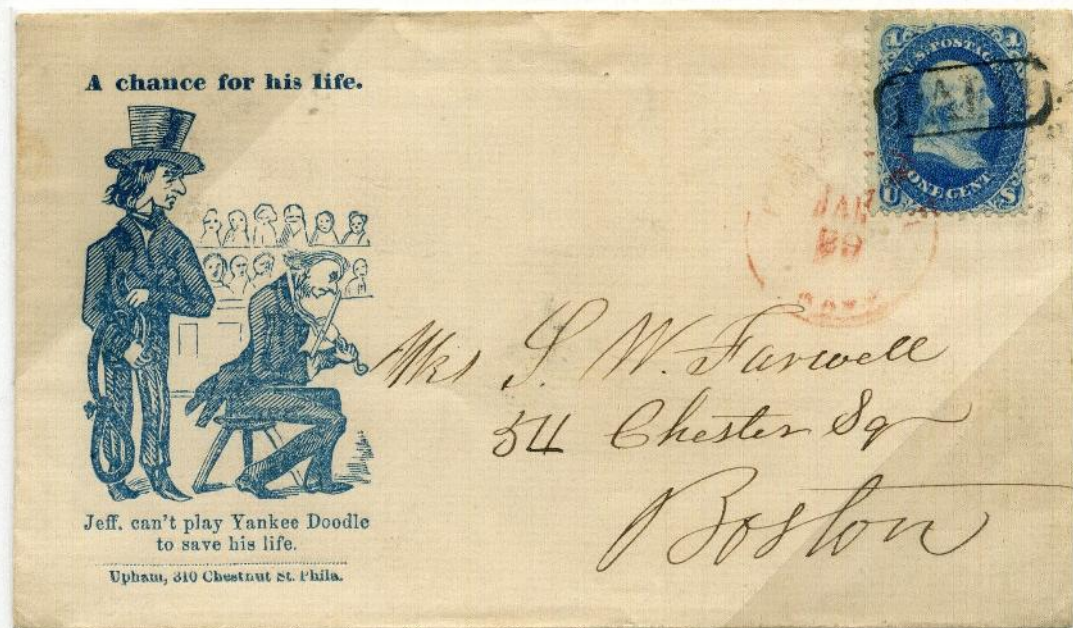 A chance for his life.
Jeff. can't play Yankee Doodle
to save his life.
Upham, 310 Chestnut St. Phila.
1 1
U.S. POSTAGE
ONE CENT
U S
PAID
JAN
29
Mrs S. W. Farwell
54 Chester Sq
Boston